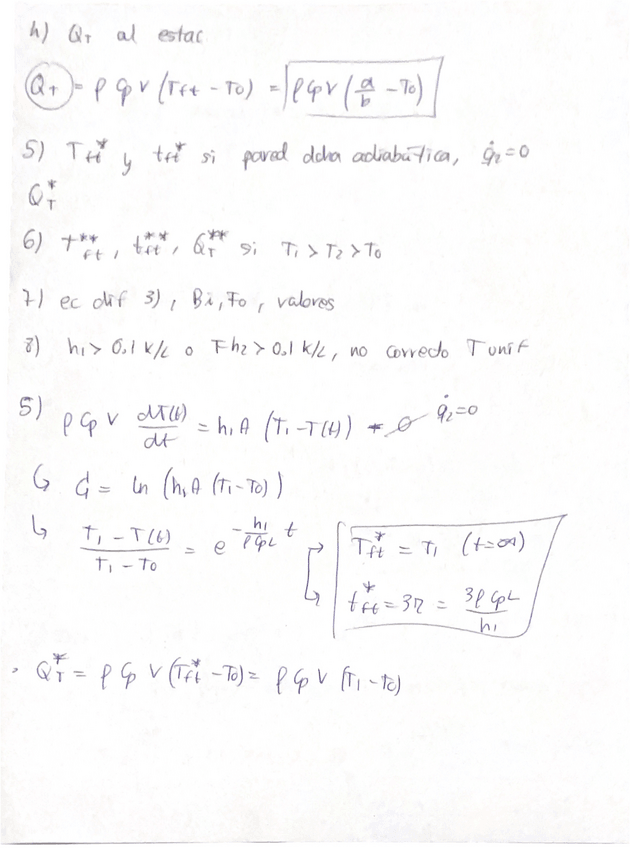 4) Q_T al estac
Q_T = ρ Cp V (Tft - T0) = ρ Cp V (a/b - T0)
5) Tft* y tft* si pared dcha adiabática, q̇2=0
Q_T*
6) t**ft, tft**, Q_T** si T1 > T2 > T0
7) ec dif 3), Bi, Fo, valores
8) h1 > 0,1 k/L o Fh2 > 0,1 k/L, no correcto T unif
5) ρ Cp V dT(t)/dt = h1 A (T1 - T(t)) + 0 q̇2=0
↳ C1 = ln (h1 A (T1 - T0))
↳ (T1 - T(t))/(T1 - T0) = e^(-h1/(ρ Cp L) t) → Tft* = T1 (t=∞)
↳ tft* = 3τ = 3ρ Cp L/h1
· Q_T* = ρ Cp V (Tft* - T0) = ρ Cp V (T1 - T0)